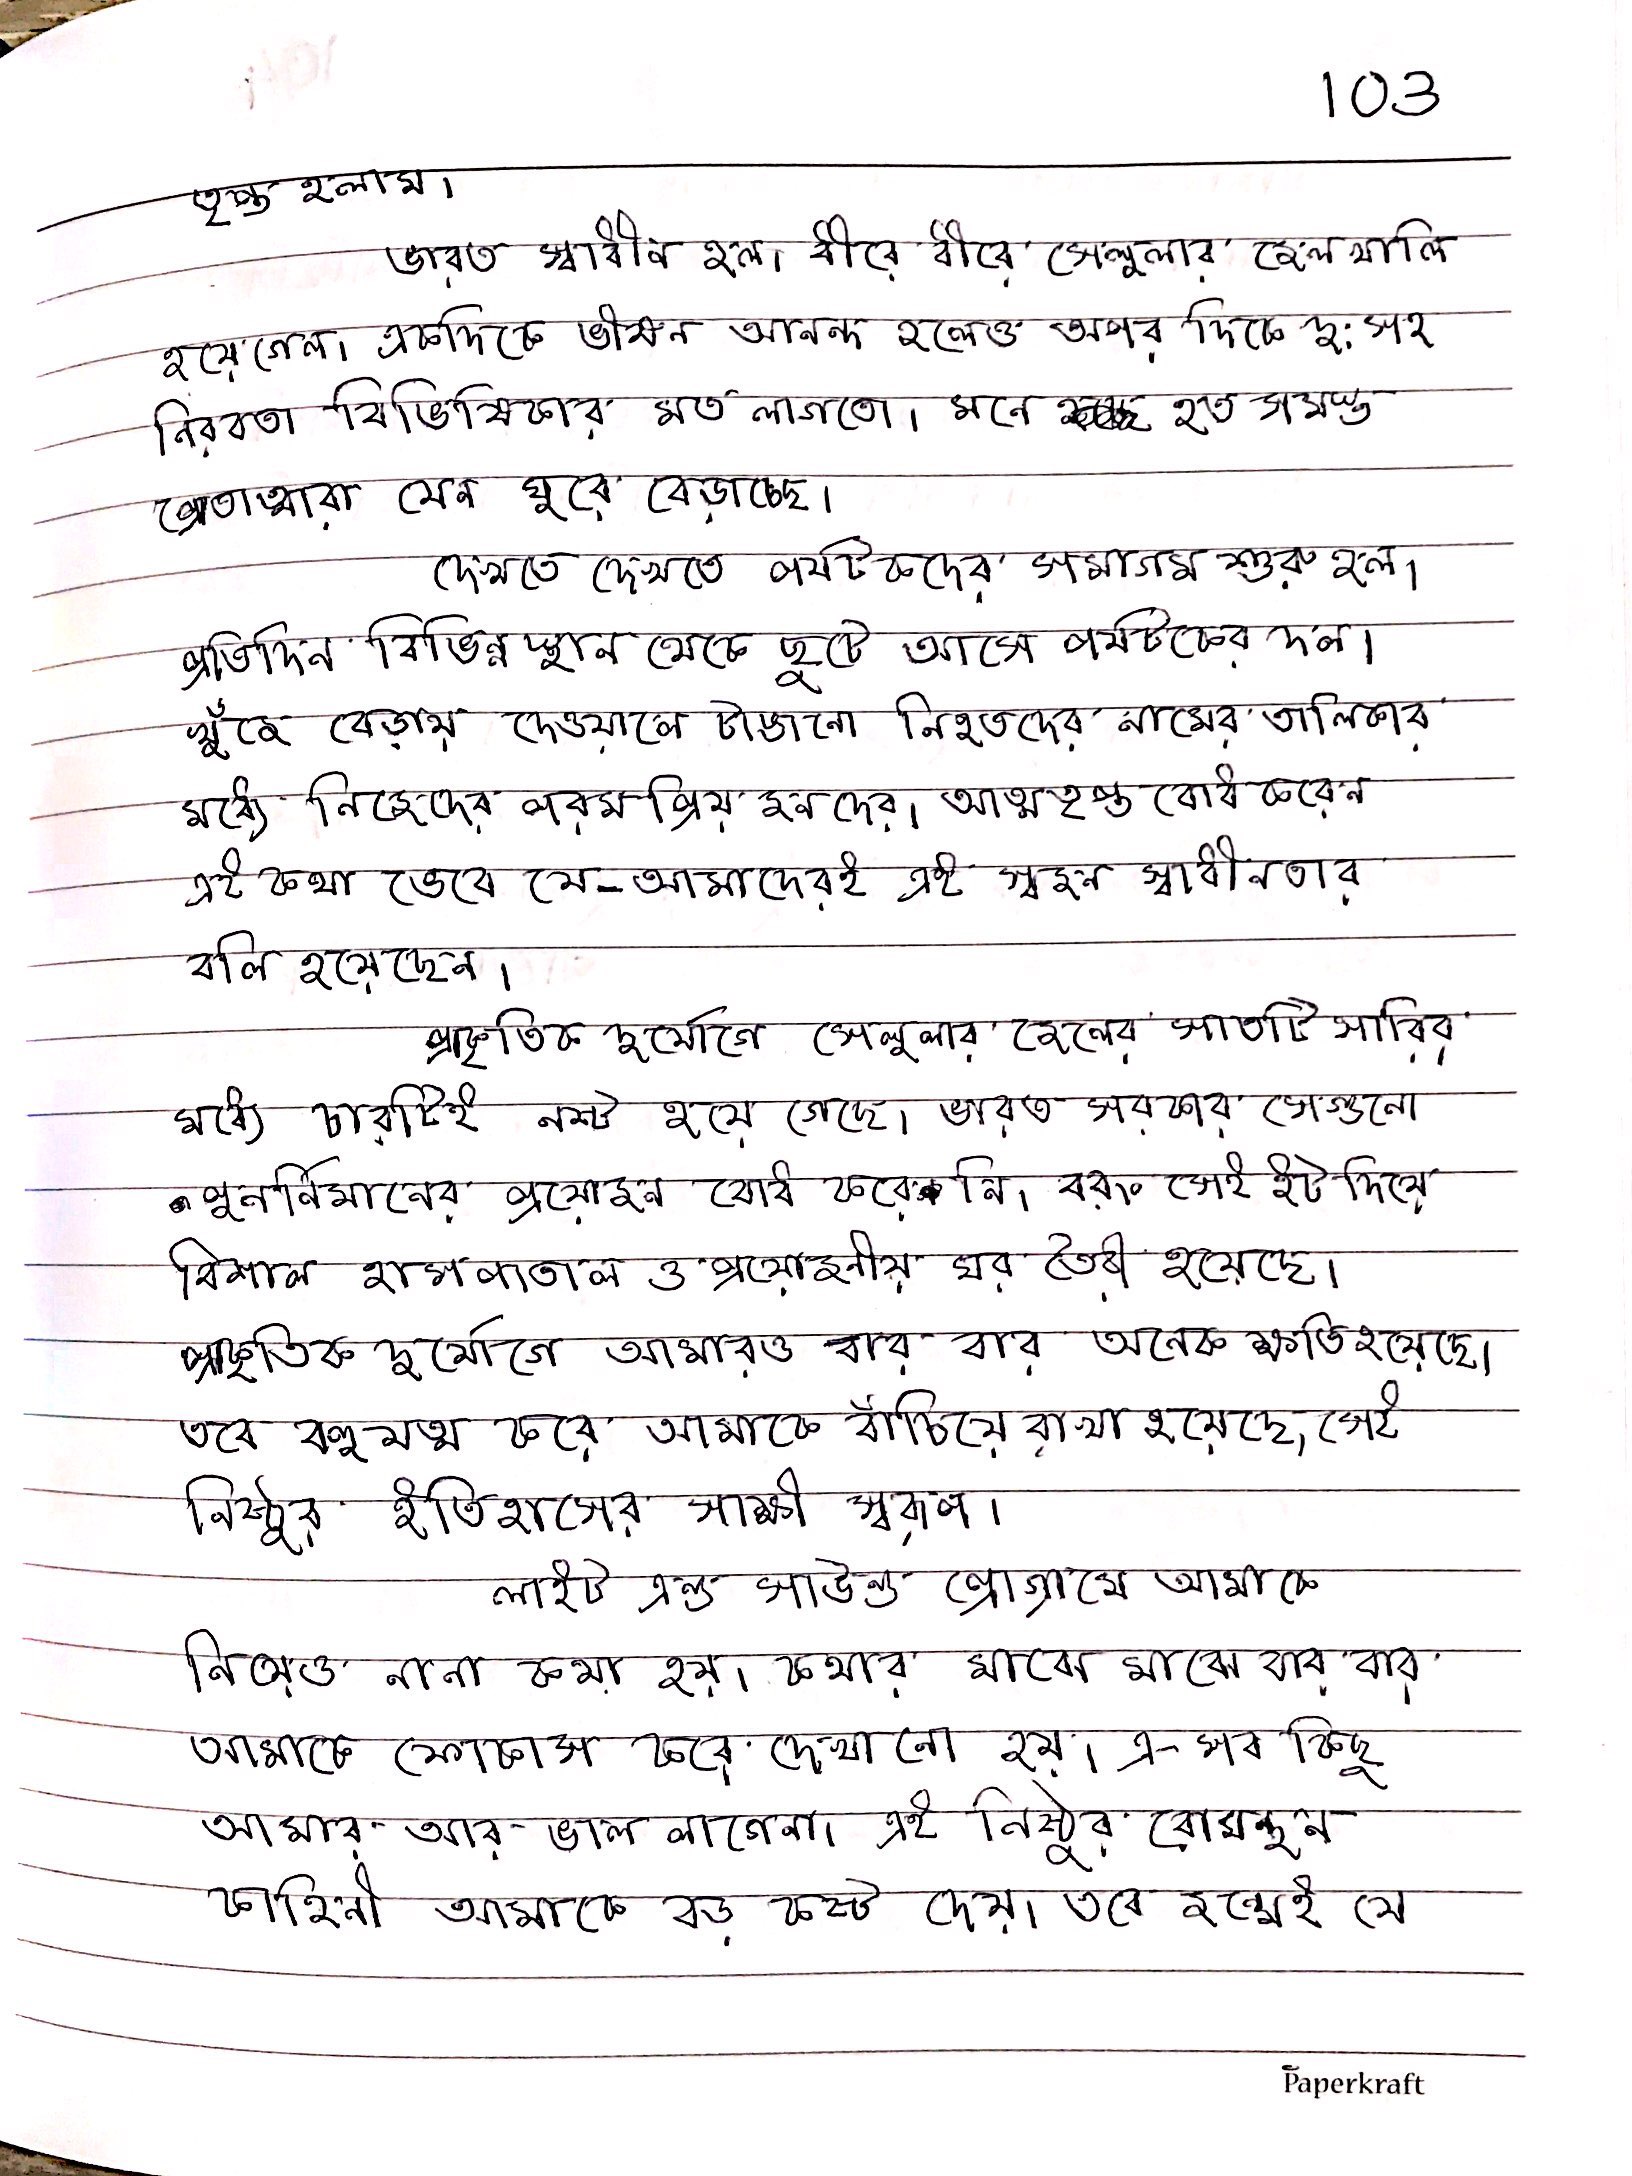 103
তৃপ্ত হলাম।
ভারত স্বাধীন হল। ধীরে ধীরে সেলুলার জেল খালি
হয়ে গেল। একদিকে ভীষন আনন্দ হলেও অপর দিকে দুঃসহ
নিরবতা বিভিষিকার মত লাগতো। মনে হত সমস্ত
প্রেতাত্মারা যেন ঘুরে বেড়াচ্ছে।
দেখতে দেখতে পর্যটকদের সমাগম শুরু হল।
প্রতিদিন বিভিন্ন স্থান থেকে ছুটে আসে পর্যটকের দল।
খুঁজে বেড়ায় দেওয়ালে টাঙানো নিহতদের নামের তালিকার
মধ্যে নিজেদের পরম প্রিয় জনদের। আত্মতৃপ্ত বোধ করেন
এই কথা ভেবে যে-আমাদেরই এই স্বজন স্বাধীনতার
বলি হয়েছেন।
প্রাকৃতিক দুর্যোগে সেলুলার জেলের সাতটি সারির
মধ্যে চারটিই নস্ট হয়ে গেছে। ভারত সরকার সেগুনো
পুনর্নিমানের প্রয়োজন বোধ করে নি। বরং সেই ইট দিয়ে
বিশাল হাসপাতাল ও প্রয়োজনীয় ঘর তৈরী হয়েছে।
প্রাকৃতিক দুর্যোগে আমারও বার বার অনেক ক্ষতি হয়েছে।
তবে বহু যত্ন করে আমাকে বাঁচিয়ে রাখা হয়েছে, সেই
নিষ্ঠুর ইতিহাসের সাক্ষী স্বরূপ।
লাইট এন্ড সাউন্ড প্রোগ্রামে আমাকে
নিয়েও নানা কথা হয়। কথার মাঝে মাঝে বার বার
আমাকে ফোকাস করে দেখানো হয়। এ-সব কিছু
আমার আর ভাল লাগেনা। এই নিষ্ঠুর রোমন্থন
কাহিনী আমাকে বড় কস্ট দেয়। তবে জন্মেই যে
Paperkraft